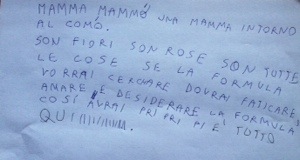 MAMMA MAMMÀ UNA MAMMA INTORNO
AL COMÒ.
SON FIORI SON ROSE SON TUTTE
LE COSE SE LA FORMULA
VORRAI CERCARE DOVRAI FATICARE
AMARE E DESIDERARE LA FORMULA
COSÌ AVRAI PRI PRI PI E' TUTTO
QUI